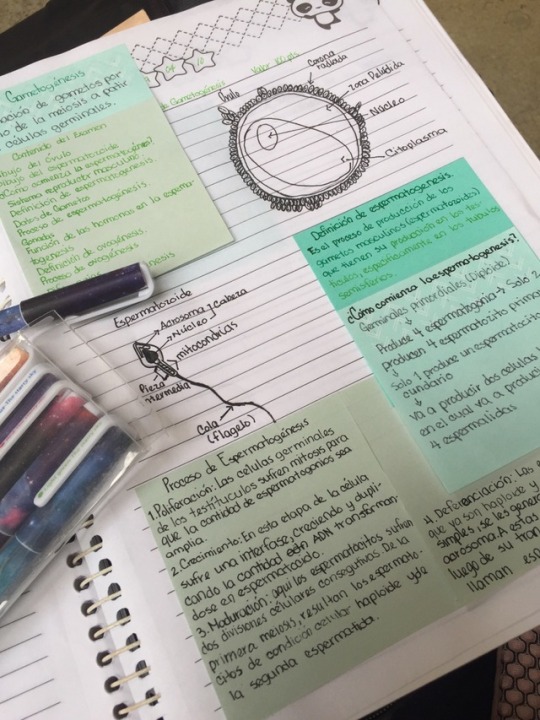 Gametogénesis
ación de gametos por
io de la meiosis a partir
células germinales.
Contenido del Examen
Dibujo del óvulo
Dibujo del espermatozoide
¿Cómo comienza la espermatogénesis?
Sistema reproductor masculino
Definición de espermatogénesis.
Datos de Gametos
Proceso de espermatogénesis.
Gónadas
Función de las hormonas en la esperma-
togénesis
Definición de ovogénesis.
Proceso de ovogénesis
Gametogénesis
Valor 100 pts
Óvulo
Corona
radiada
Zona Pelúcida
Núcleo
Citoplasma
Espermatozoide
Acrosoma
Núcleo
Cabeza
mitocondrias
Pieza
intermedia
Cola
(flagelo)
Definición de espermatogenesis.
Es el proceso de producción de los
gametos masculinos (espermatozoides)
que tienen su producción en los tes-
tículos, específicamente en los túbulos
seminíferos.
¿Cómo comienza la espermatogenesis?
Germinales primordiales (Diploide)
Produce 4 espermatogonia → Solo 2
producen 4 espermatocito primar
Solo 1 produce un espermatocito
cundario
va a producir dos células
en el cual va a produci
4 espermatidas
Proceso de Espermatogénesis
1. Poliferación: Las células germinales
de los testituculos sufren mitosis para
que la cantidad de espermatogonios sea
amplia.
2. Crecimiento: En esta etapa de la célula
sufre una interfase, creciendo y dupli-
cando la cantidad ADN transforman-
dose en espermatocido.
3. Maduración: aqui los espermatocitos sufren
dos divisiones célulares consecutivas. De la
primera meiosis, resultan los espermato-
citos de condición celular haploide y de
la segunda espermatida.
4. Deferenciación: Las e
que ya son haploide y
simples, se les gener
luego de su tran
llaman esp